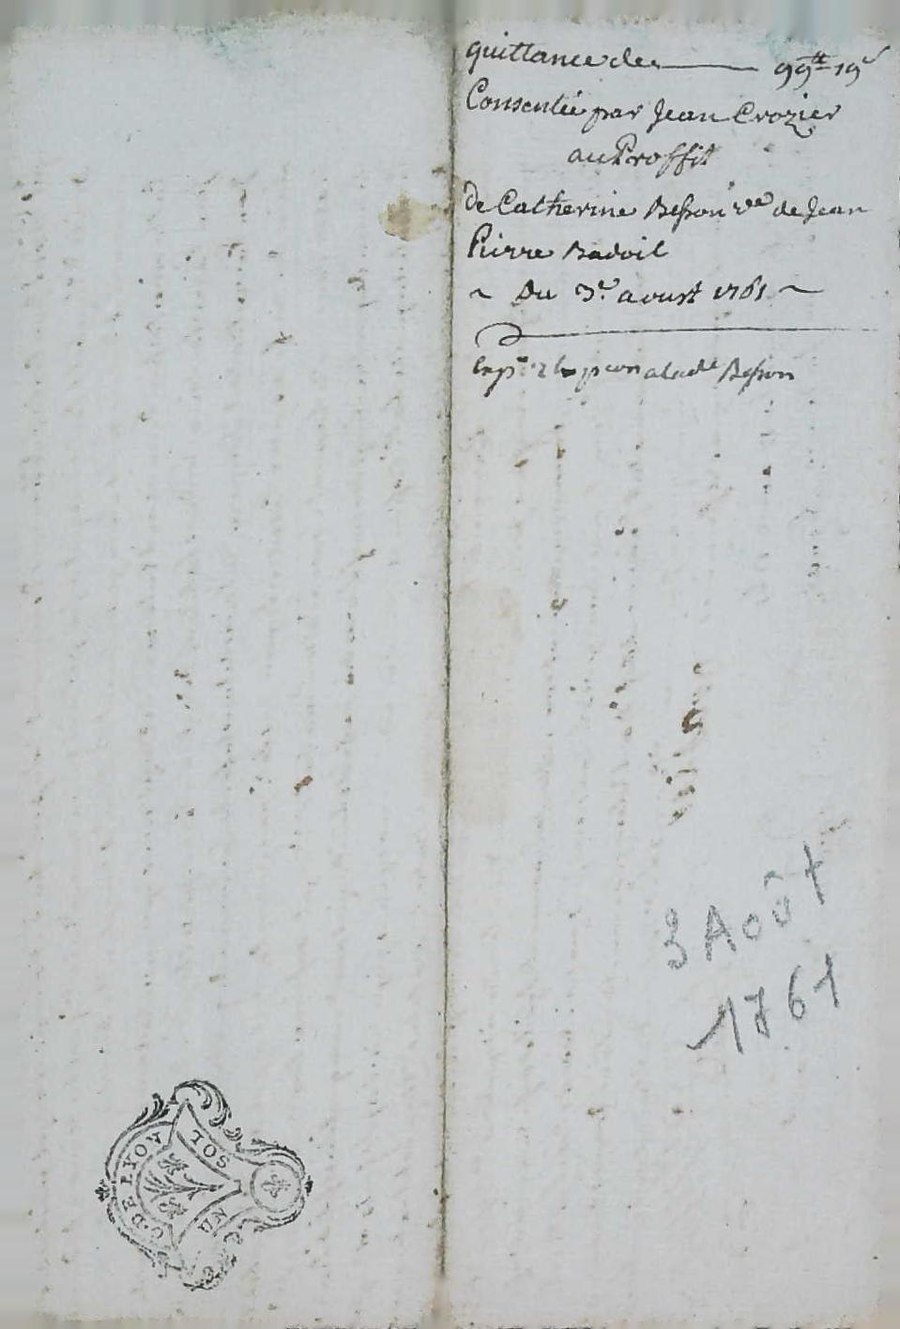 quittance de 99# 19s
Consentie par Jean Crozier
au Proffit
de Catherine Besson ve de Jean
Pierre Badoil
~ Du 3e aoust 1761 ~
Besson
3 Août
1761
G. DE LYON
SOL